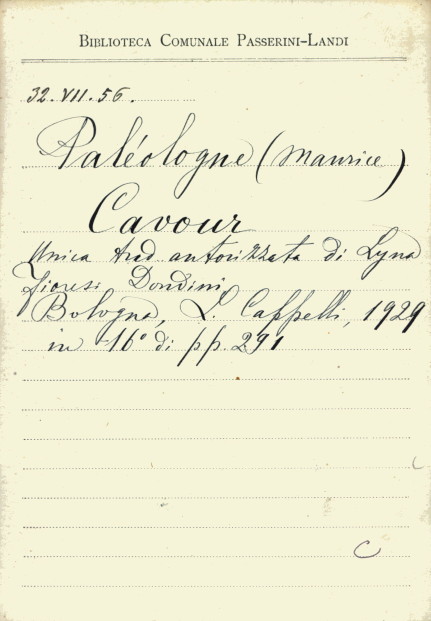 BIBLIOTECA COMUNALE PASSERINI-LANDI
32.VII.56.
Paléologue (Maurice)
Cavour
Unica trad autorizzata di Lyna
Fioresi Dondini
Bologna, L. Cappelli, 1929
in -16° di pp. 291
C